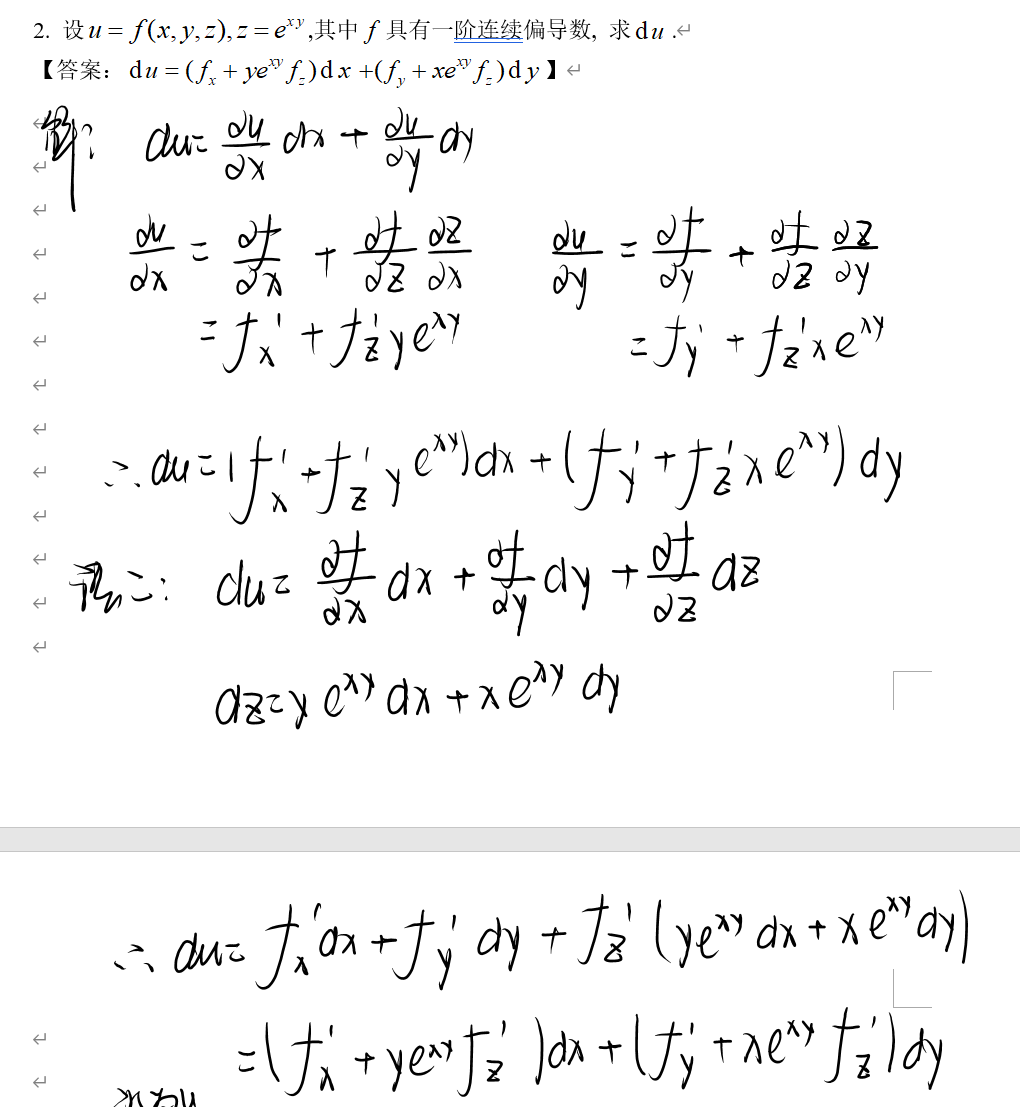 2. 设u = f(x, y, z), z = e^{xy} ,其中 f 具有一阶连续偏导数, 求du .
【答案: du = (f_x + ye^{xy} f_z)dx +(f_y + xe^{xy} f_z)dy】
解: du = ∂u/∂x dx + ∂u/∂y dy
∂u/∂x = ∂f/∂x + ∂f/∂z ∂z/∂x ∂u/∂y = ∂f/∂y + ∂f/∂z ∂z/∂y
= f_x' + f_z' ye^{xy} = f_y' + f_z' xe^{xy}
∴ du = (f_x' + f_z' ye^{xy})dx + (f_y' + f_z' xe^{xy})dy
二: du = ∂f/∂x dx + ∂f/∂y dy + ∂f/∂z dz
dz = ye^{xy} dx + xe^{xy} dy
∴ du = f_x' dx + f_y' dy + f_z' (ye^{xy} dx + xe^{xy} dy)
= (f_x' + ye^{xy} f_z')dx + (f_y' + xe^{xy} f_z')dy